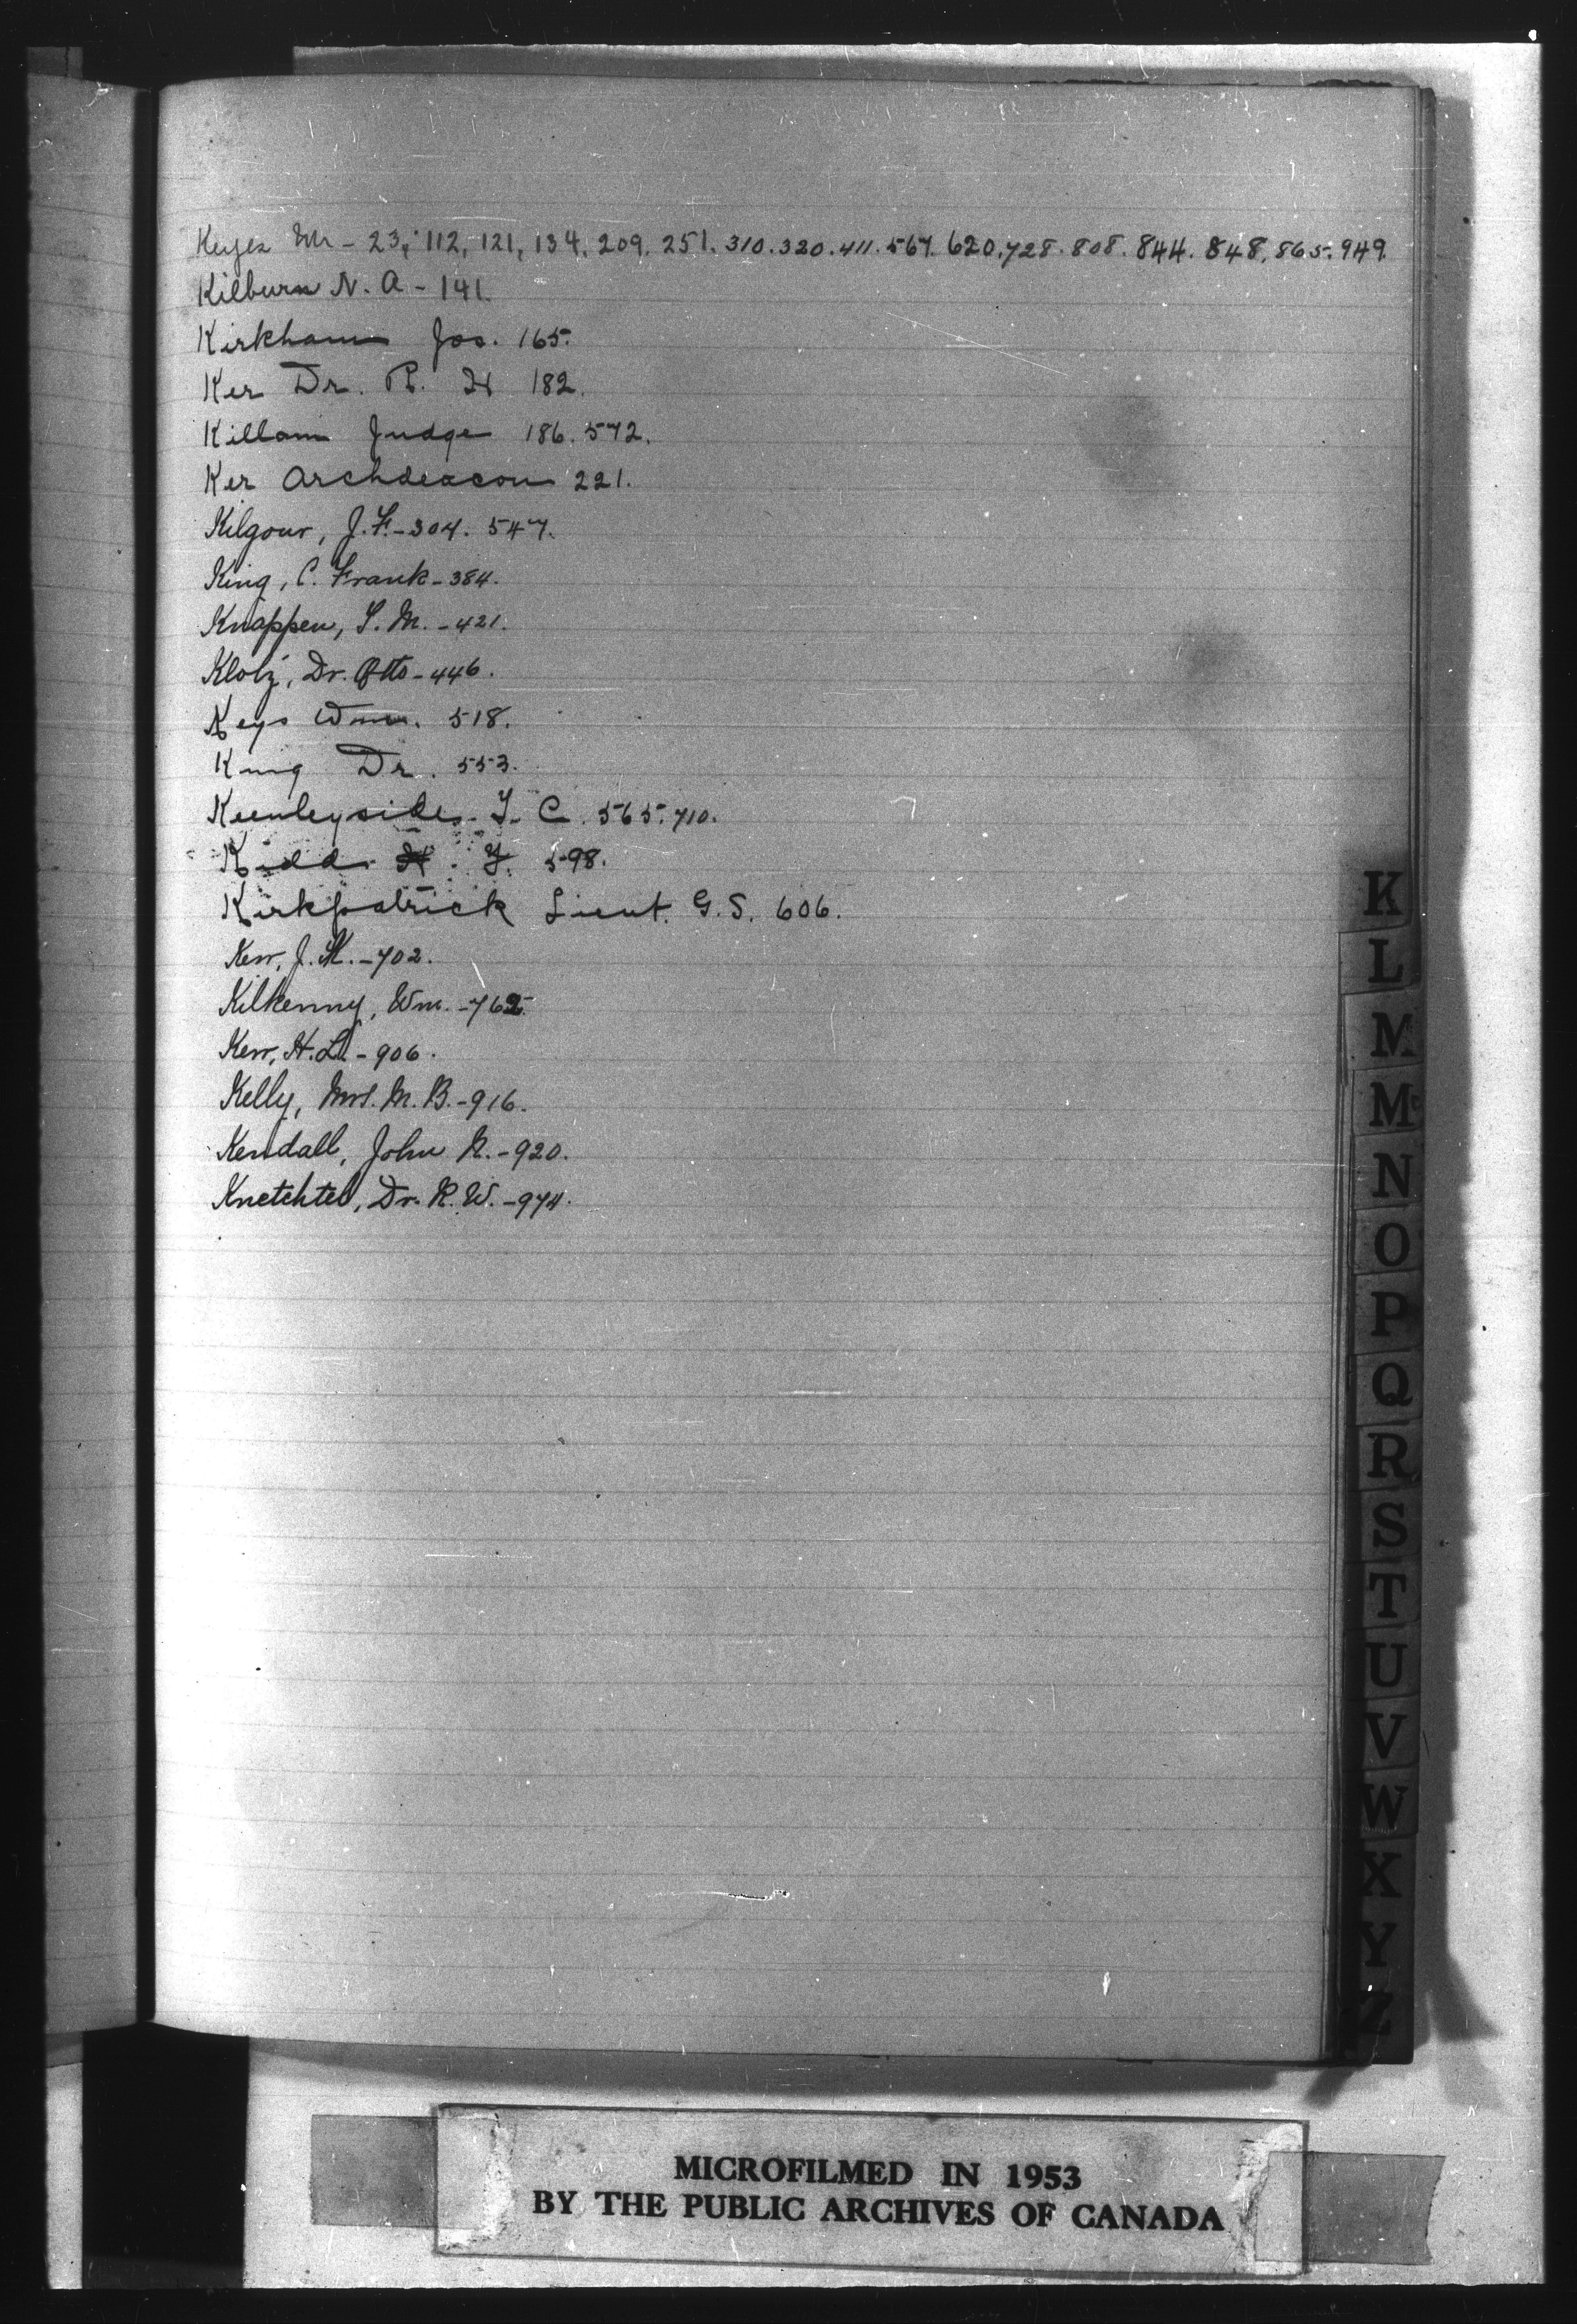 Keyes Mr - 23, 112, 121, 134, 209. 251. 310. 320. 411. 567. 620. 728. 808. 844. 848. 865. 949.
Kilburn N. A - 141.
Kirkham Jos. 165.
Ker Dr. R. H 182.
Killam Judge 186. 572.
Ker Archdeacon 221.
Kilgour, J. F. - 304. 547.
King, C. Frank - 384.
Knappen, S. M. - 421.
Klotz, Dr. Otto - 446.
Keys Wm. 518.
King Dr. 553.
Keenleyside. T. C. 565. 710.
Kidd F. 598.
Kirkpatrick Lieut. G. S. 606.
Kerr, J. K. - 702.
Kilkenny, Wm. -
Kerr, H. L. - 906.
Kelly, Mrs. M. B. - 916.
Kendall, John R. - 920.
Knetchtel, Dr. R. W. - 974.
K
L
M
Mc
N
O
P
Q
R
S
T
U
V
W
X
Y
Z
MICROFILMED IN 1953
BY THE PUBLIC ARCHIVES OF CANADA